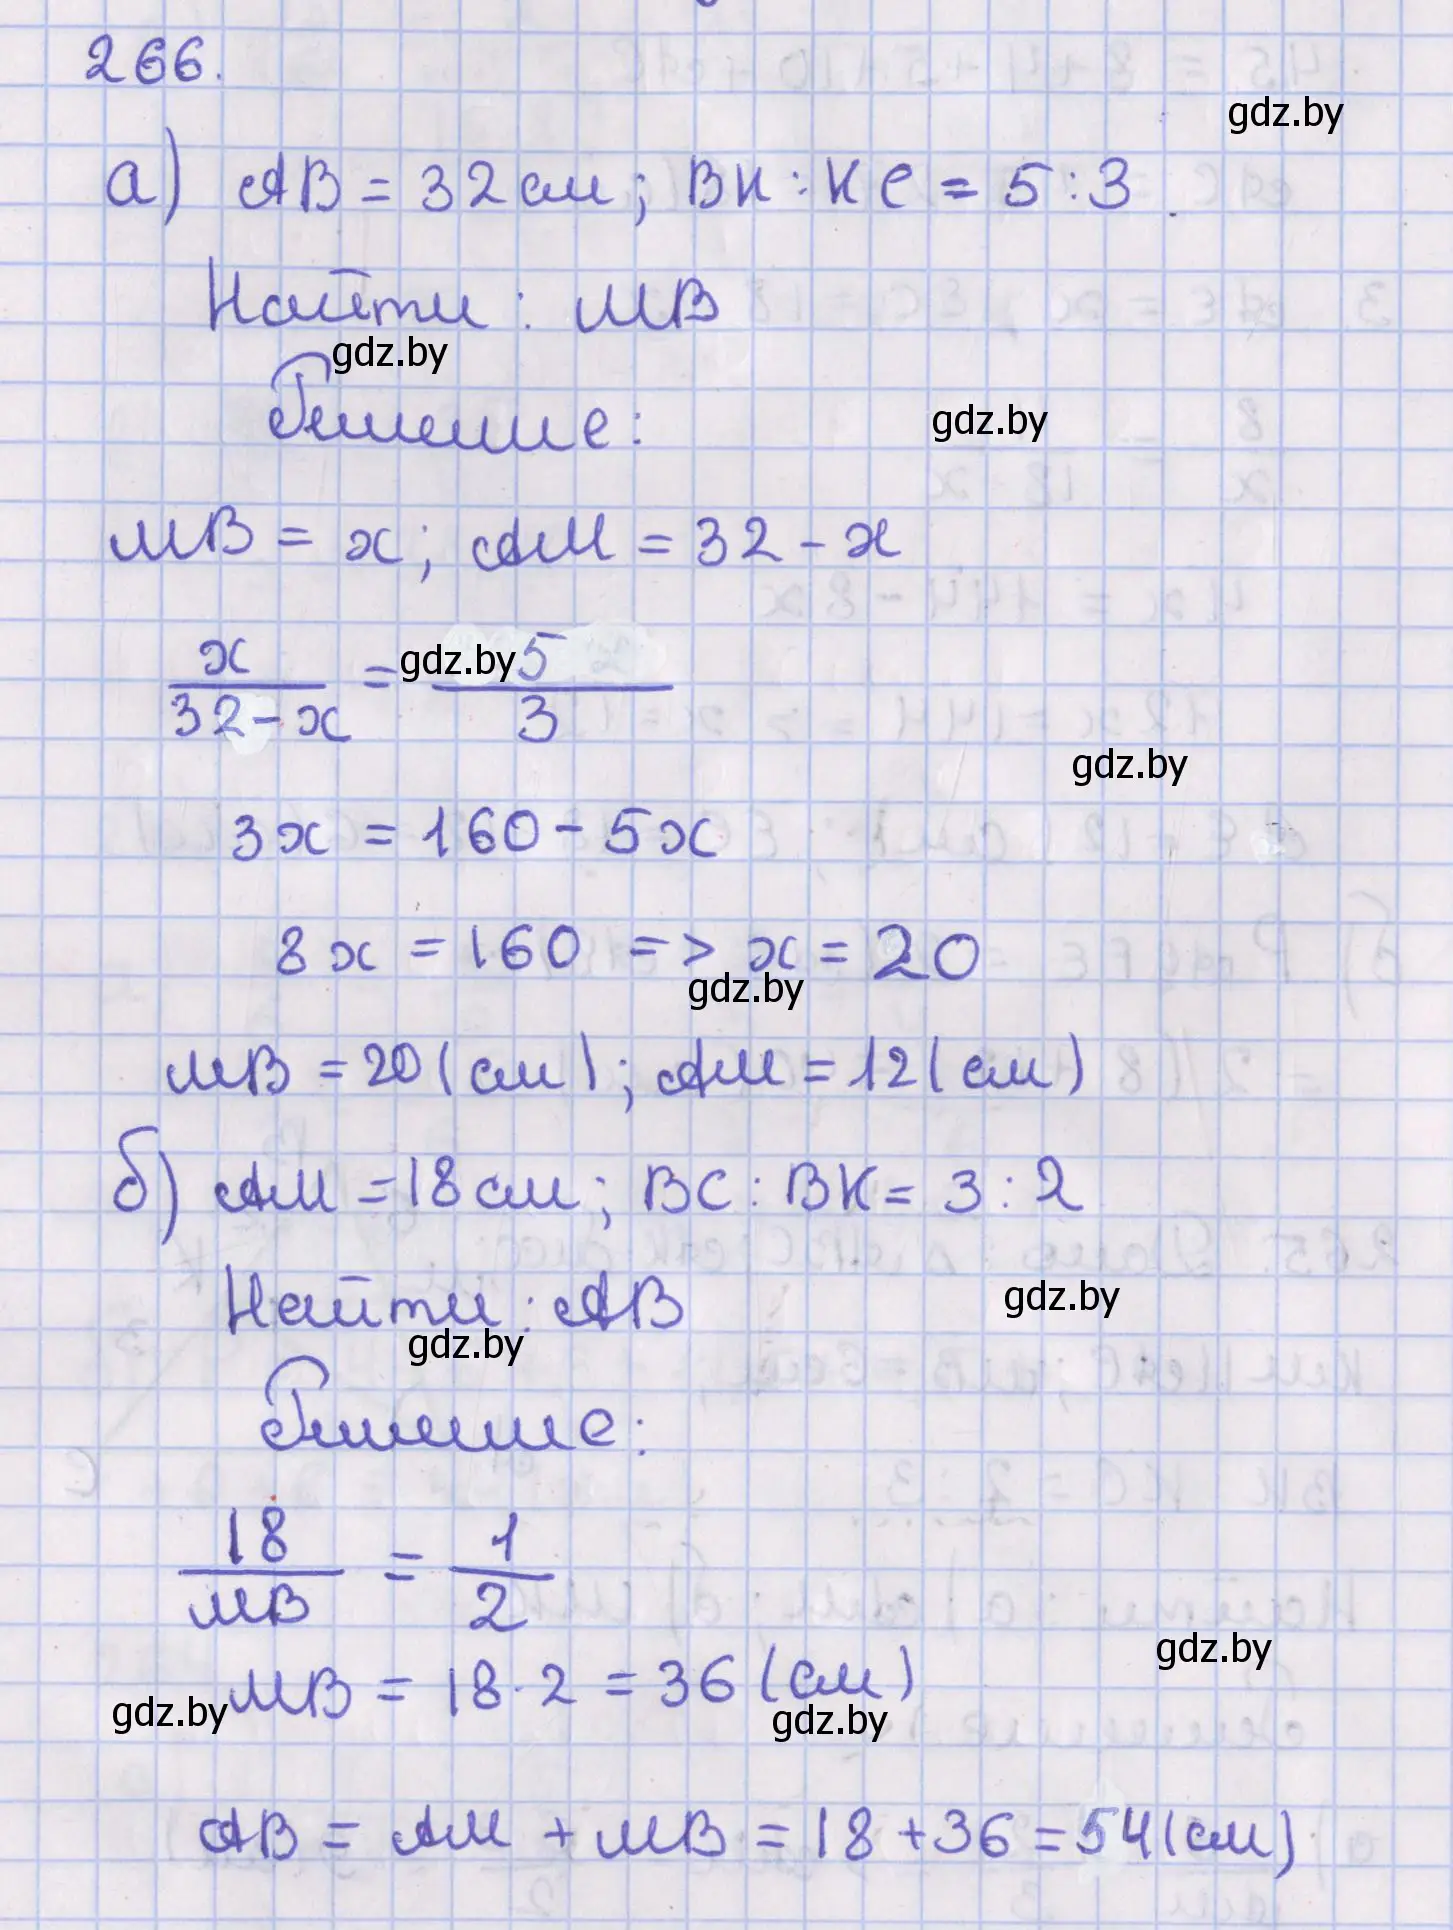 266.
gdz.by
а) AB = 32 см; BK : KC = 5 : 3.
Найти: MB
gdz.by
Решение:
gdz.by
MB = x; AM = 32 - x
x / (32 - x) = 5 / 3
gdz.by
gdz.by
3x = 160 - 5x
8x = 160 => x = 20
gdz.by
MB = 20 (см); AM = 12 (см)
б) AM = 18 см; BC : BK = 3 : 2
Найти: AB
gdz.by
gdz.by
Решение:
18 / MB = 1 / 2
gdz.by
MB = 18 · 2 = 36 (см)
gdz.by
gdz.by
AB = AM + MB = 18 + 36 = 54 (см)